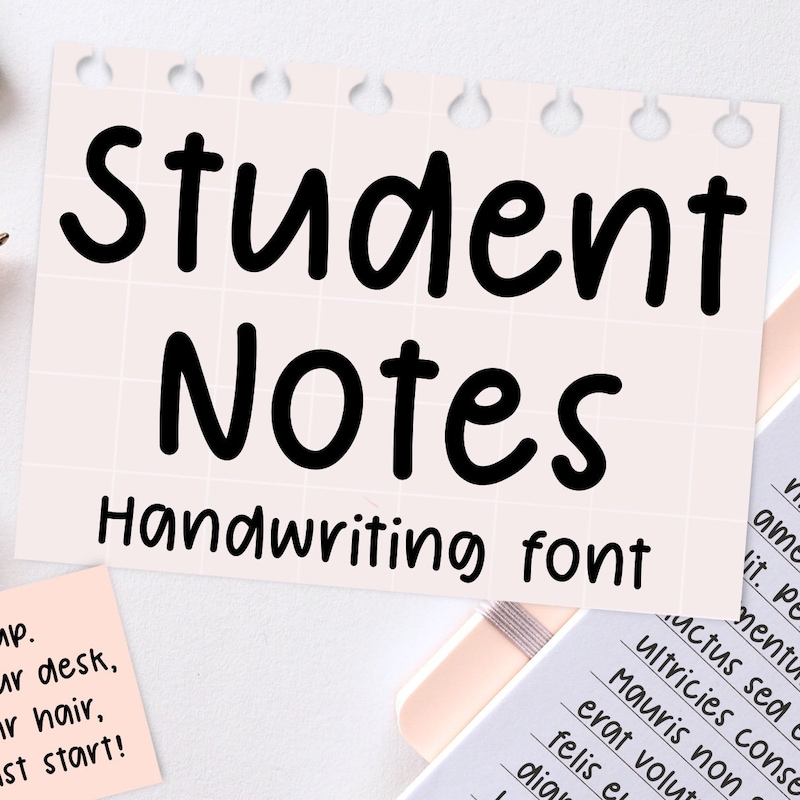 Student
Notes
Handwriting font
up.
ur desk,
ur hair,
ust start!
ame
lit. pe
mentu
luctus sed e
ultricies conse
Mauris non
erat volut
felis eu
dign